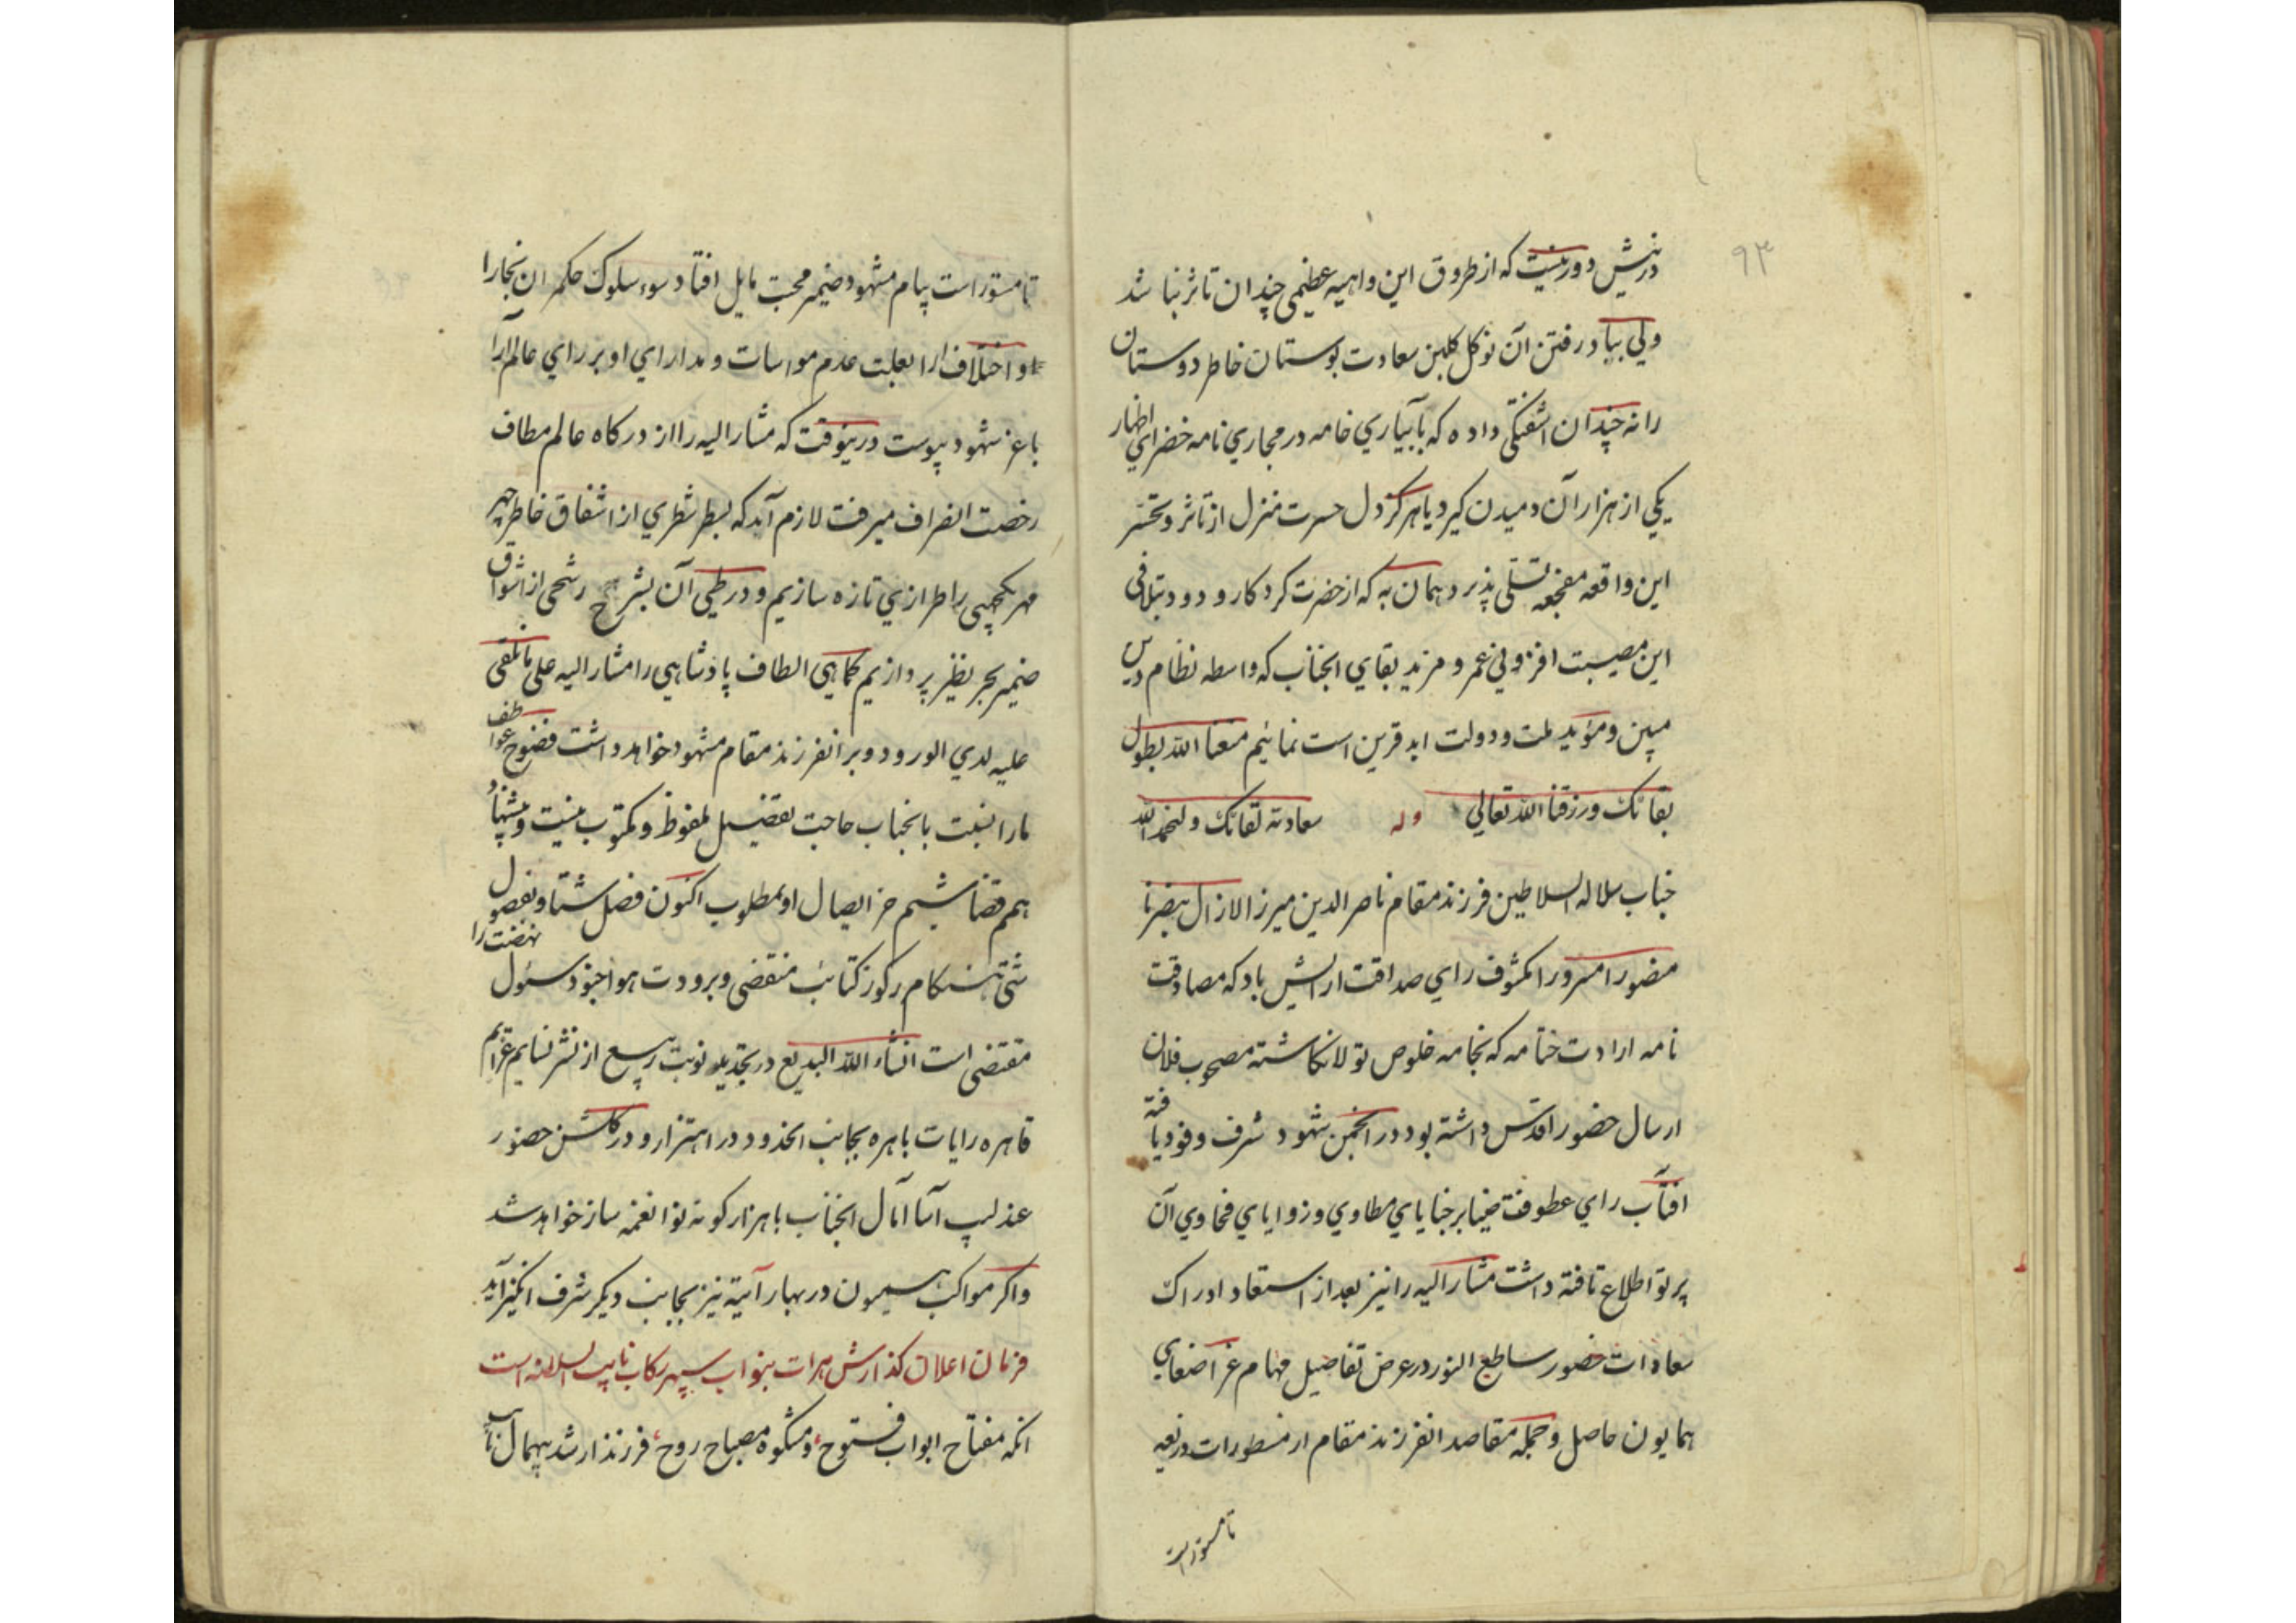 ۹۳
درینش دور نیست که از طروق این واهیه عظیمی چندان تاثر نباشد
ولی بباد رفتن آن نوکل کلبن سعادت بوستان خاطر دوستان
را نه چندان اشفتکی داده که بآبیاری خامه در مجاری نامه خضرای اظهار
یکی از هزار آن دمیدن کیرد یا هرکز دل حسرت منزل از تاثر و تحسر
این واقعه مفجعه تسلی پذیرد همان به که از حضرت کردکار ودود بتلافی
این مصیبت افزونی عمر و مزید بقای انجناب که واسطه نظام دین
مبین و مؤید ملت و دولت ابد قرین است نمائیم متعنا الله بطول
بقائک ورزقنا الله تعالی وله سعادته لقائک
جناب سلاله السلاطین فرزند مقام ناصر الدین میرزا لازال بنصرنا
منصورا مسرورا مکشوف رای صداقت ارایش باد که مصادقت
نامه ارادت ختامه که بخامه خلوص تولا نکاشته مصحوب فلان
ارسال حضور اقدس داشته بود در انجمن شهود شرف وفود یافته
افتاب رای عطوفت ضیا بر خبایای مطاوی و زوایای فحاوی آن
پرتو اطلاع تافته داشت مشار الیه را نیز بعد از استسعاد ادراک
سعادات حضور ساطع النور در عرض تفاصیل مهام عز اصغای
همایون حاصل و جمله مقاصد انفرزند مقام از مسطورات ذریعه
تا مستورات
تا مستورات پیام مشهود ضمیر محبت مایل افتاد سوء سلوک حکمران بخارا
و اختلاف ارا بعلت عدم مواسات و مدارای او بر رای عالم ارا
باعز شهود پیوست درینوقت که مشار الیه را از درکاه عالم مطاف
رخصت انصراف میرفت لازم آمد که بسطر شطری از اشفاق خاطر مهر
مهر یکجهتی را طرازی تازه سازیم و در طی آن بشرح رشحی از اشواق
ضمیر بحر نظیر پردازیم کماهی الطاف پادشاهی را مشار الیه علی ما تلقی
علیه لدی الورود و بر انفرزند مقام مشهود خواهد داشت وضوح عواطف
ما را نسبت بانجناب حاجت تفصیل ملفوظ و مکتوب نیست
هم قضا شیم جز ایصال او بمطلوب اکنون فصل شتا و بفصول
شتی هنکام رکوز کتائب منقضی و برودت هوا جنود نهضت را
مقتضی است انشاء الله البدیع در تجدید نوبت ربیع از نشر نسایم عزایم
قاهره رایات باهره بجانب انحدود در اهتزار و در کلشن حضور
عندلیب آسا آمال انجناب با هزار کونه نوا نغمه ساز خواهد شد
واکر مواکب همیون در بهار آتیه نیز بجانب دیکر شرف انکیز آید
فرمان اعلان کذارش هرات بنواب سپهر رکاب نایب السلطنه است
انکه مفتاح ابواب فتوح، و مشکوة مصباح روح، فرزند ارشد بیهمال نایب